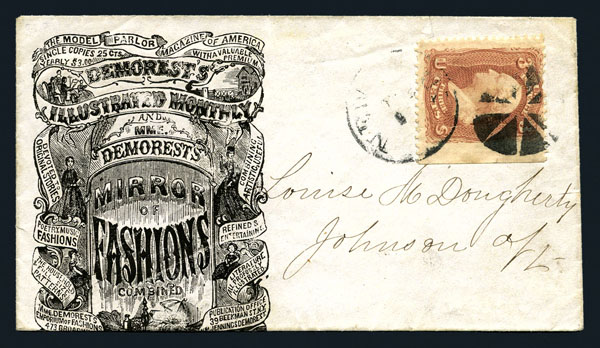 THE MODEL PARLOR MAGAZINE OF AMERICA
SINGLE COPIES 25 CTS.
YEARLY $3.00
WITH A VALUABLE
PREMIUM
DEMOREST'S
ILLUSTRATED MONTHLY
AND
MME.
DEMOREST'S
MIRROR
OF
FASHIONS
COMBINED
DEVOTED TO
ORIGINAL STORIES
POETRY MUSIC
FASHIONS
PATTERNS
REFINED &
ENTERTAINING
LITERATURE
MME. DEMOREST'S
EMPORIUM OF FASHIONS
473 BROADWAY
PUBLICATION OFFICE
39 BEEKMAN ST. N.Y.
W. JENNINGS DEMOREST
NEW
U
3
CENTS
S
Louise McDougherty
Johnson
Vt